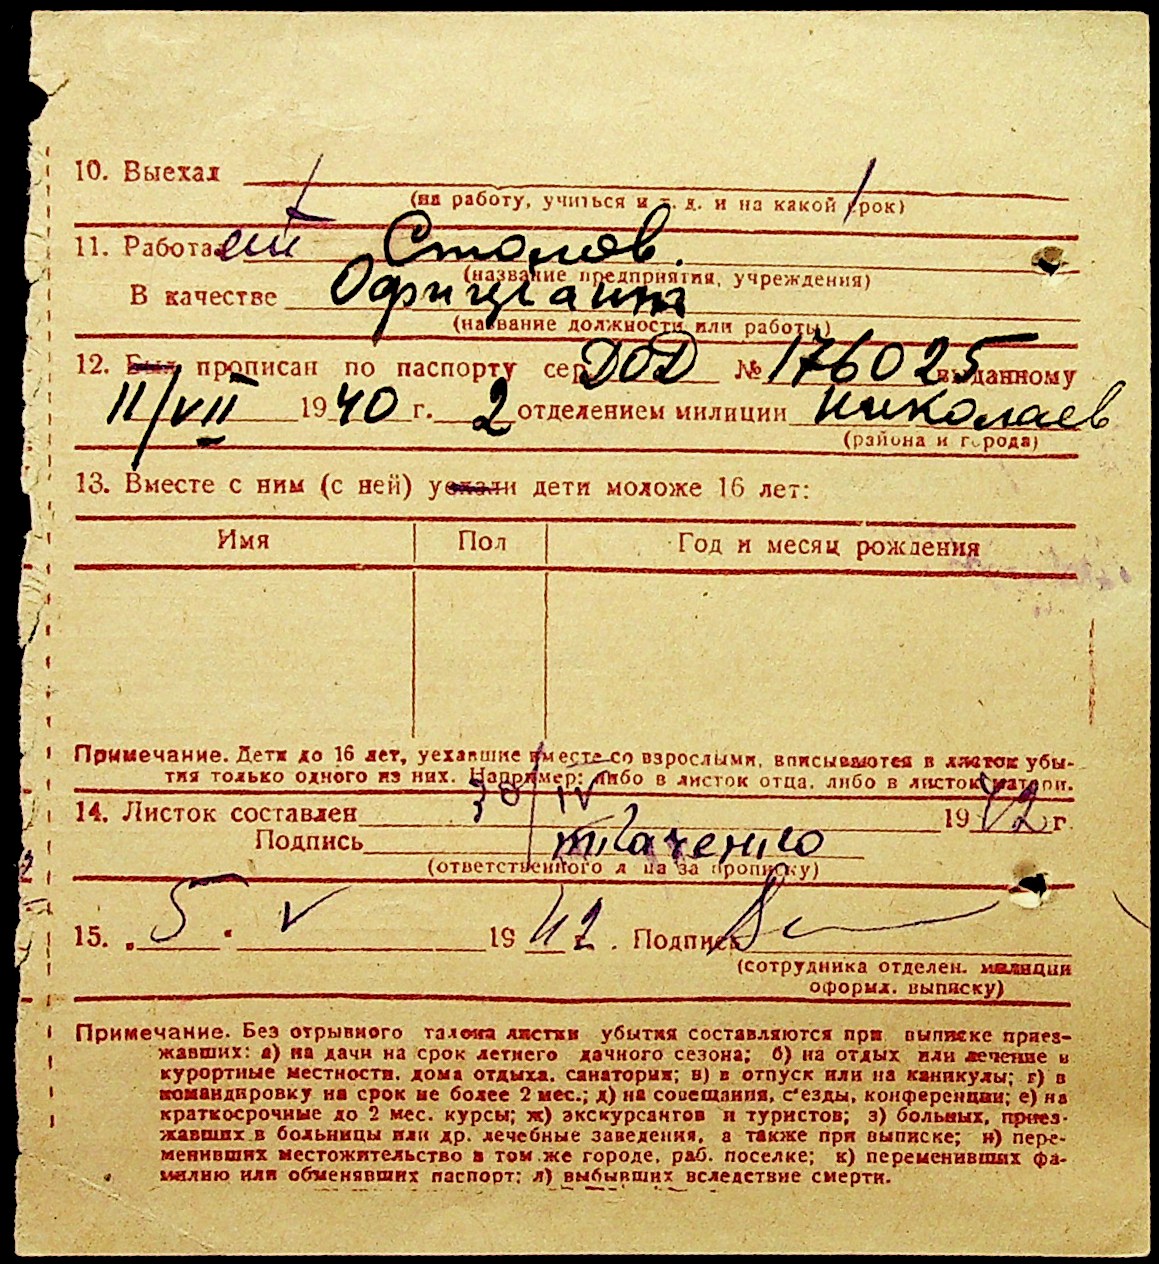 10. Выехал
(на работу, учиться и т. д. и на какой срок)
11. Работает Столов.
(название предприятия, учреждения)
В качестве Официанта
(название должности или работы)
12. Был прописан по паспорту сер. ДОД № 176025 выданному
11/VII 1940 г. 2 отделением милиции Николаев
(района и города)
13. Вместе с ним (с ней) уехали дети моложе 16 лет:
Имя Пол Год и месяц рождения
Примечание. Дети до 16 лет, уехавшие вместе со взрослыми, вписываются в листок убы-
тия только одного из них. Например: либо в листок отца, либо в листок матери.
14. Листок составлен 30/IV 1942 г
Подпись Ткаченко
(ответственного лица за прописку)
15. 5. V 1942 г. Подпись
(сотрудника отделен. милиции
оформл. выписку)
Примечание. Без отрывного талона листки убытия составляются при выписке приез-
жавших: а) на дачи на срок летнего дачного сезона; б) на отдых или лечение в
курортные местности, дома отдыха, санатория; в) в отпуск или на каникулы; г) в
командировку на срок не более 2 мес.; д) на совещания, с'езды, конференции; е) на
краткосрочные до 2 мес. курсы; ж) экскурсантов и туристов; з) больных, приез-
жавших в больницы или др. лечебные заведения, а также при выписке; и) пере-
менивших местожительство в том же городе, раб. поселке; к) переменивших фа-
милию или обменявших паспорт; л) выбывших вследствие смерти.